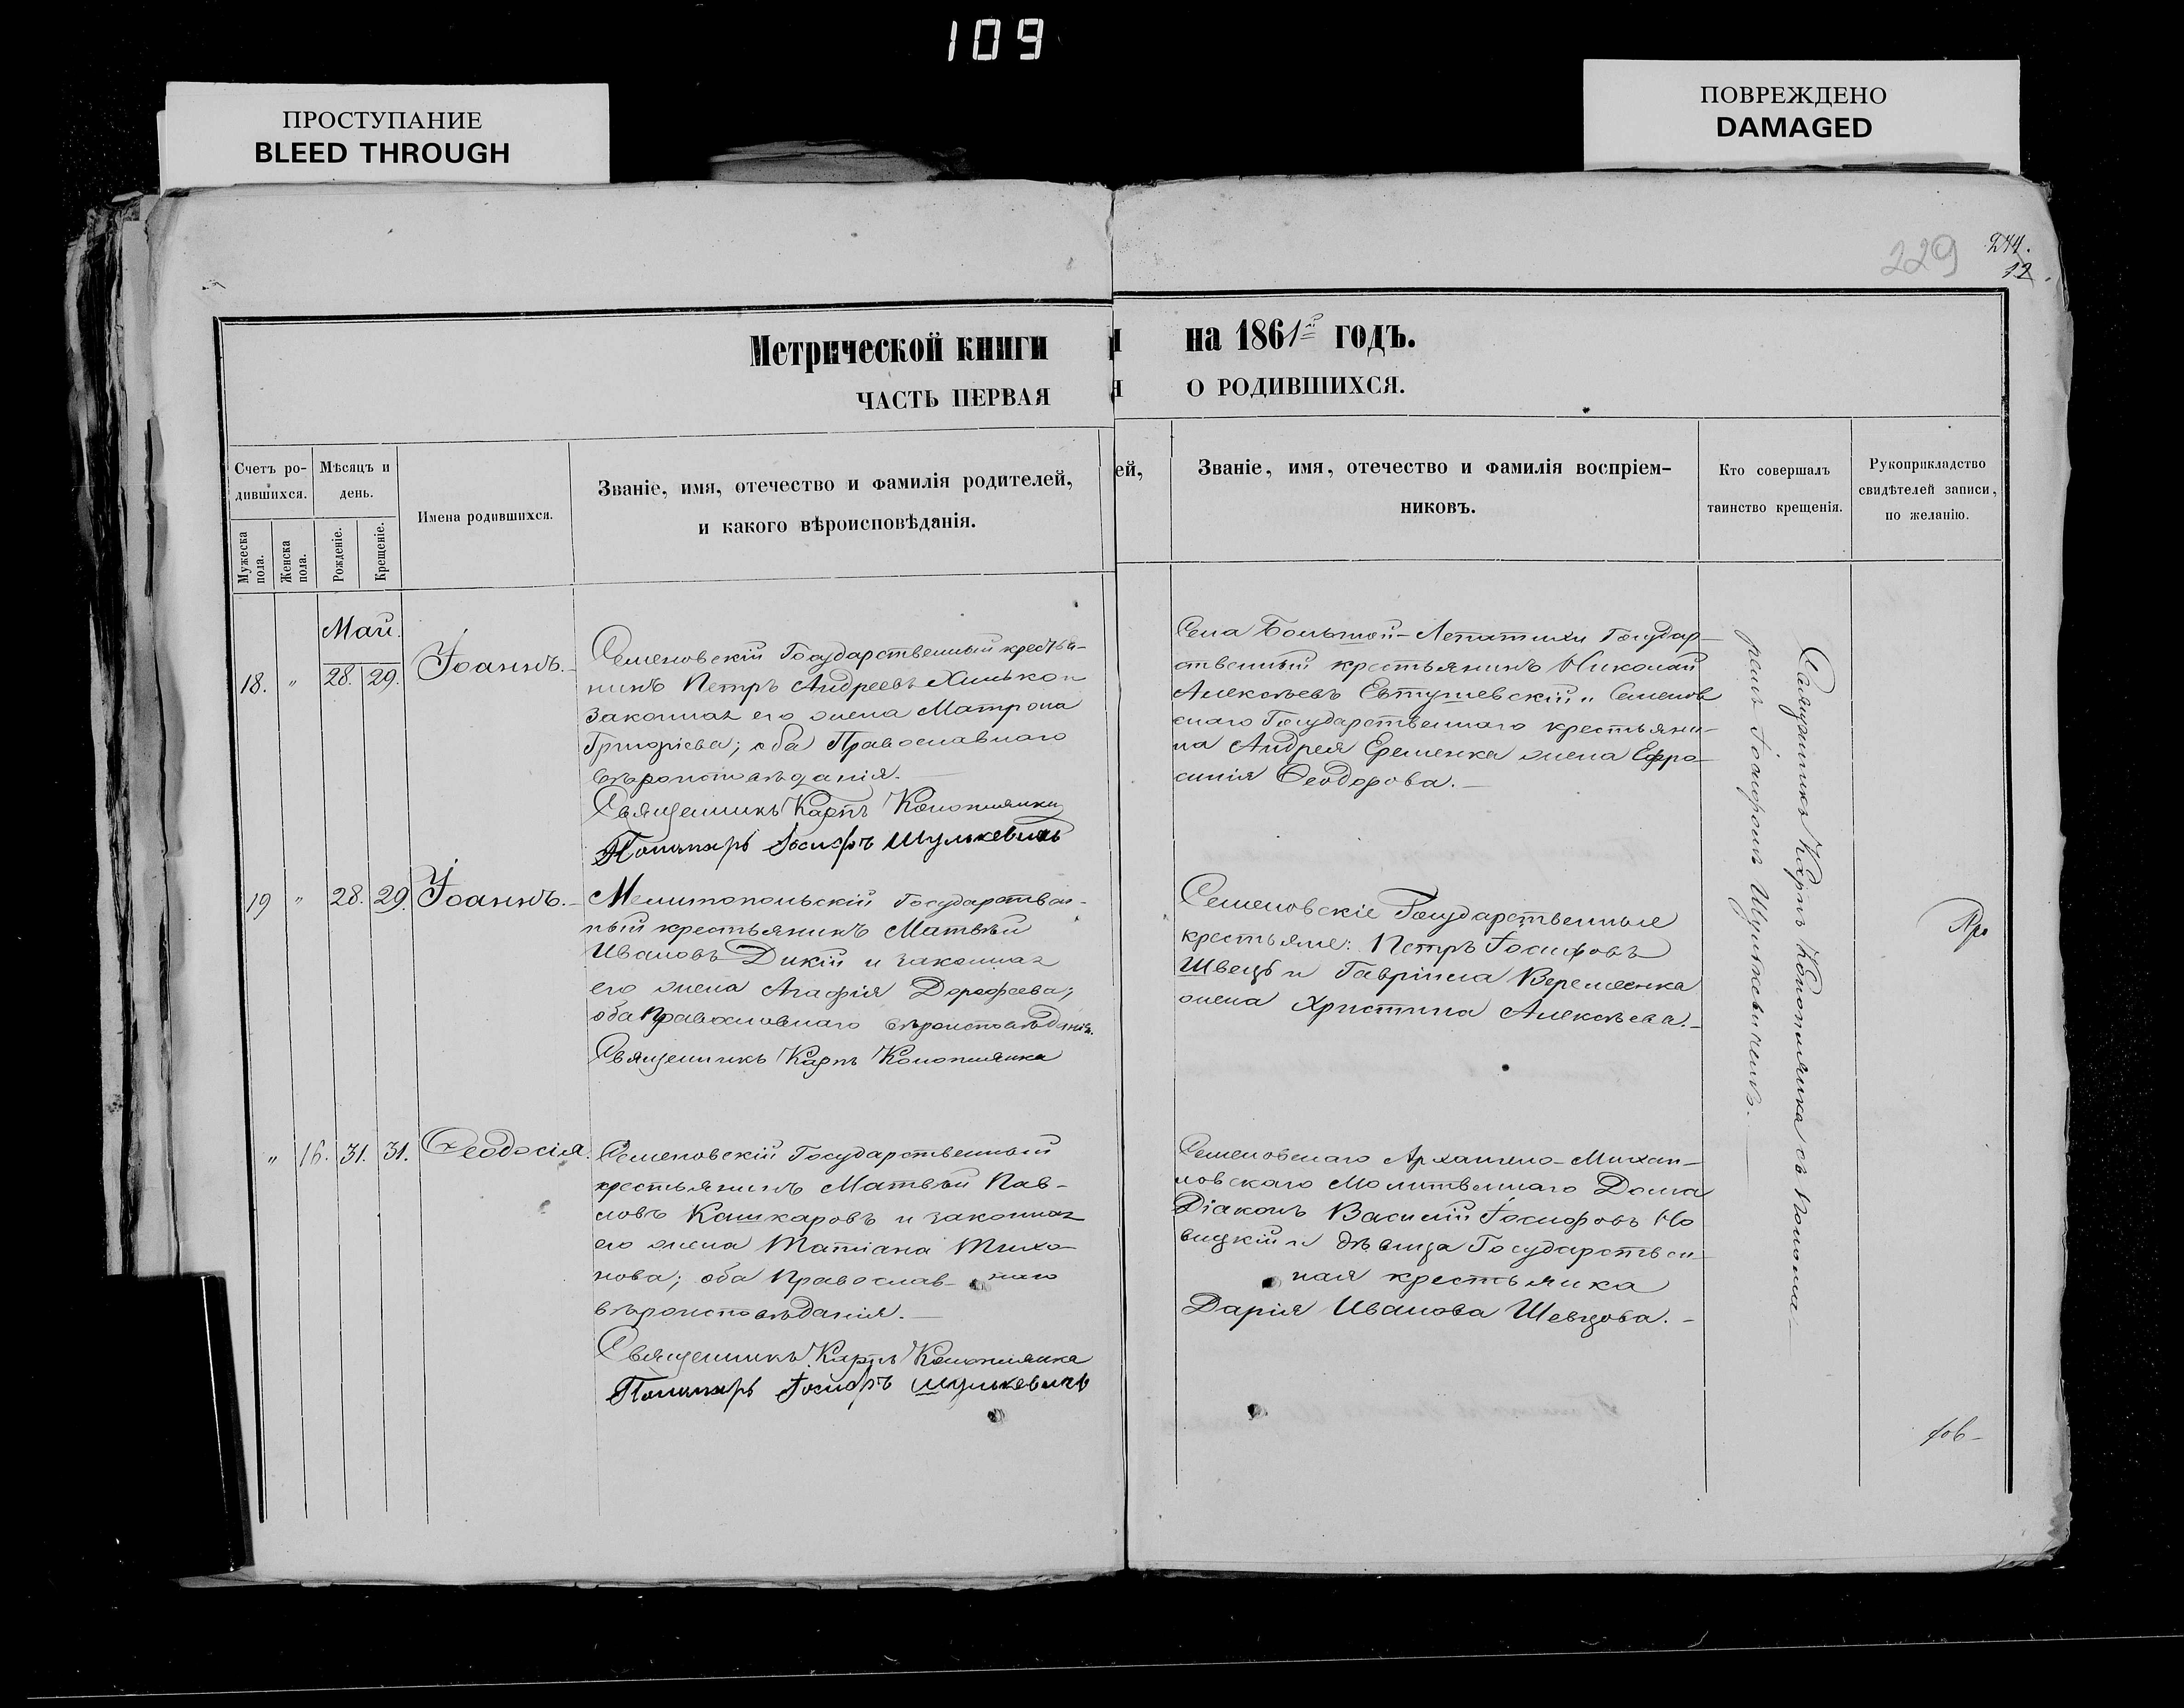 109
ПРОСТУПАНИЕ
BLEED THROUGH
ПОВРЕЖДЕНО
DAMAGED
229
244.
12
Метрической книги на 1861й годъ.
ЧАСТЬ ПЕРВАЯ О РОДИВШИХСЯ.
Счетъ ро-
дившихся.
Мужеска
пола.
Женска
пола.
Мѣсяцъ и
день.
Рожденіе.
Крещеніе.
Имена родившихся.
Званіе, имя, отечество и фамилія родителей,
и какого вѣроисповѣданія.
ей,
Званіе, имя, отечество и фамилія воспріем-
никовъ.
Кто совершалъ
таинство крещенія.
Рукоприкладство
свидѣтелей записи,
по желанію.
Май.
18. " 28. 29. Іоаннъ.
Семеновскій Государственный крестья-
нинъ Петръ Андреевъ
законная его жена Матрона
Григоріева; оба Православнаго
вѣроисповѣданія.
Священникъ Карпъ Конопляика
Пономарь Іосифъ Шулькевичъ
Села Большой-Лепатихи Государ-
ственный крестьянинъ Николай
Алексѣевъ Евтушевскій и Семенов
скаго Государственнаго крестьяни-
на Андрея Еременка жена Ефро-
синія Ѳеодорова.
19 " 28. 29. Іоаннъ.
Мелитопольскій Государствен-
ный крестьянинъ Матвѣй
Ивановъ Дикій и законная
его жена Агафія Дорофеева;
оба Православнаго вѣроисповѣданія.
Священникъ Карпъ Конопляика
Семеновскіе Государственные
крестьяне: Петръ Іосифовъ
Швецъ и Гавріила Веременка
жена Христина Алексѣева.
" 16. 31. 31. Ѳеодосія.
Семеновскій Государственный
крестьянинъ Матвѣй Пав-
ловъ Кашкаровъ и законная
его жена Татіана Тихо-
нова; оба Православ- наго
вѣроисповѣданія.
Священникъ Карпъ Конопляика
Пономарь Іосифъ Шулькевичъ
Семеновскаго Архангело-Михаи-
ловскаго Молитвеннаго Дома
Діаконъ Василій Іосифовъ Но
вицкій и дѣвица Государствен-
ная крестьянка
Дарія Иванова Шевцова.
Священникъ Карпъ Конопляика съ Понома-
ремъ Іосифомъ Шулькевичемъ.
Про